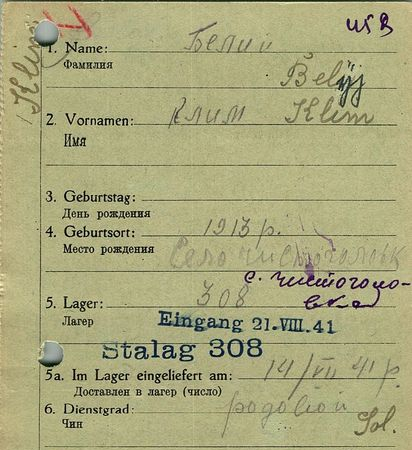 Klim
1. Name: Белий
Фамилия
Belyj
2. Vornamen: Клим Klim
Имя
3. Geburtstag:
День рождения
4. Geburtsort: 1913 р.
Место рождения
Село
с. Чистоголо-
вка
5. Lager: 308
Лагер
Eingang 21.VIII.41
Stalag 308
5a. Im Lager eingeliefert am: 14/VII 41 р.
Доставлен в лагер (число)
6. Dienstgrad: Sol.
Чин